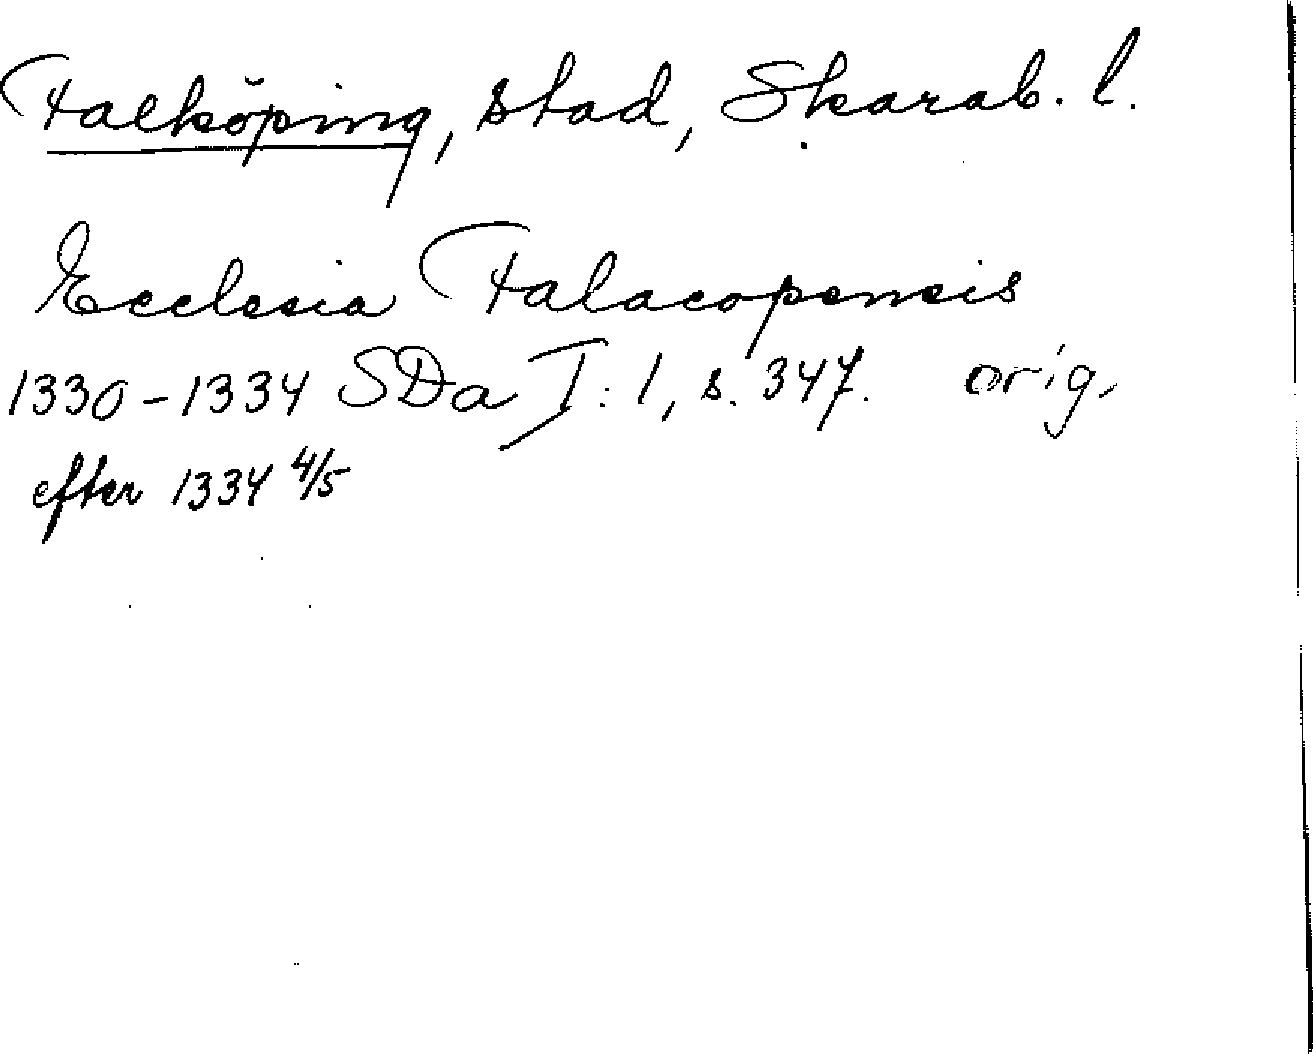 Falköping, stad, Skarab. l.
Ecclesia Falacopensis
1330-1334 SDa I: 1, s. 347. orig.
efter 1334 4/5